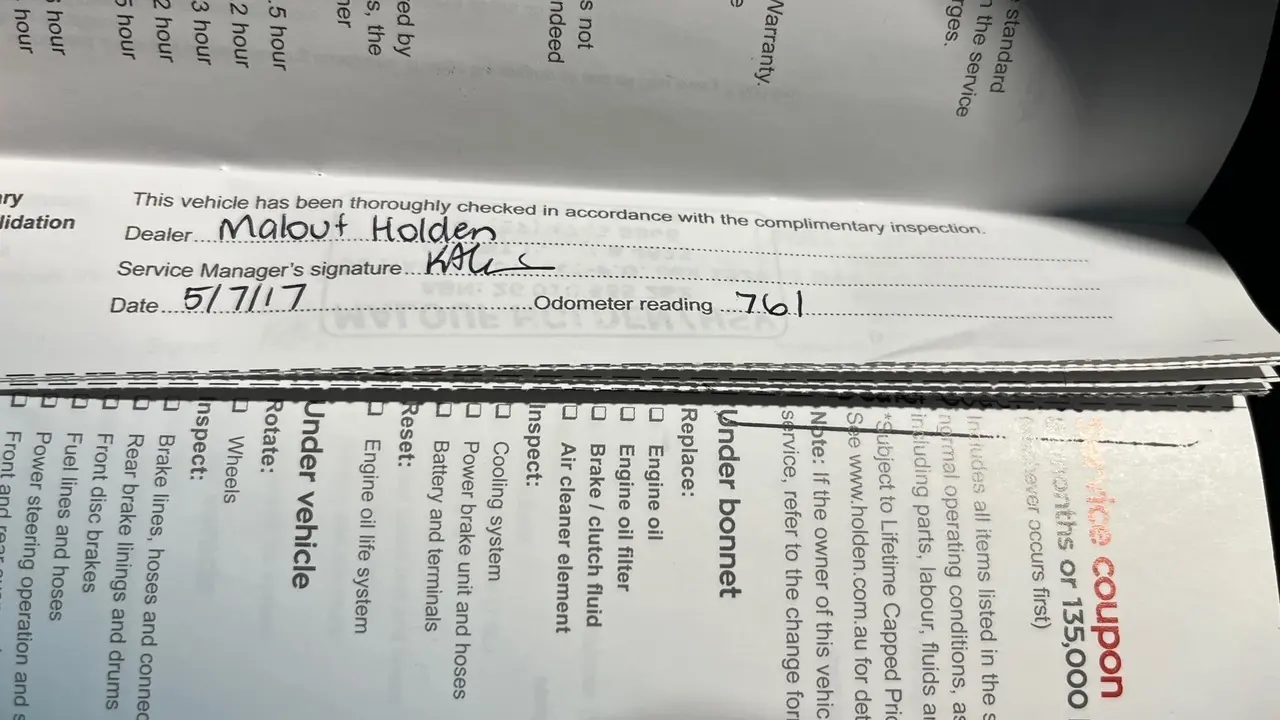 standard
n the service
rges.
Warranty.
e
s not
ndeed
red by
s, the
ner
.5 hour
2 hour
3 hour
2 hour
5 hour
hour
hour
ary
lidation
This vehicle has been thoroughly checked in accordance with the complimentary inspection.
Dealer Malouf Holden
Service Manager's signature
Date 5/7/17 Odometer reading 761
service coupon
months or 135,000
(whichever occurs first)
Includes all items listed in the s
normal operating conditions, as
including parts, labour, fluids a
*Subject to Lifetime Capped Pric
See www.holden.com.au for det
Note: If the owner of this vehic
service, refer to the change for
Under bonnet
Replace:
Engine oil
Engine oil filter
Brake / clutch fluid
Air cleaner element
Inspect:
Cooling system
Power brake unit and hoses
Battery and terminals
Reset:
Engine oil life system
Under vehicle
Rotate:
Wheels
Inspect:
Brake lines, hoses and connec
Rear brake linings and drums
Front disc brakes
Fuel lines and hoses
Power steering operation and s
Front and rear